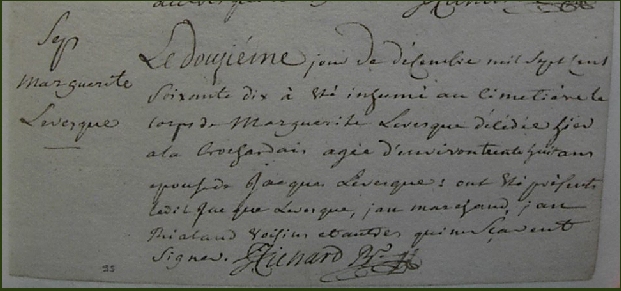 Sep
Marguerite
Levesque
Le douziéme jour de décembre mil Sept Cent
Soixante dix à été inhumé au Cimetière le
Corps de Marguerite Levesque décédée hier
a la Crochardais agée d'environ trente huit ans
epouse de Jacques Levesque : ont été présents
ledit Jacque Levesque, jan marchand, jan
voisins et autres qui ne sçavent
Signer. Richard